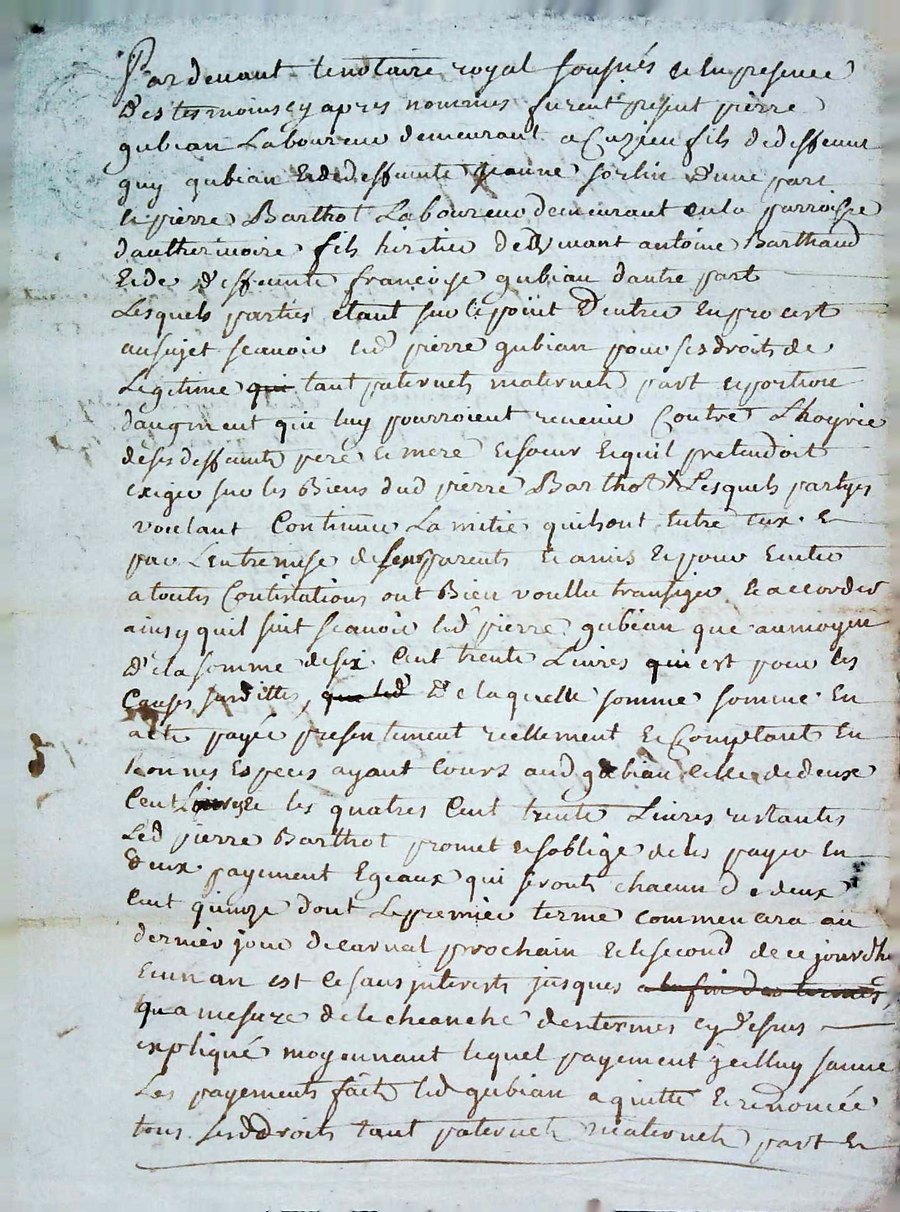 Par devant le notaire royal sousnés et en presence
des tesmoins cy apres nommes furent present pierre
gubian Laboureur demeurant a Cuzieu fils de deffeunt
guy gubian et de deffeunte jeanne sorlin d'une part
et pierre Barthot Laboureur demeurant en la parroisse
daultherivoire fils hiritier de deffunt antoine Barthaud
et de deffeunte francoise gubian dautre part
Lesquels parties etant sur le point d'entrer en procest
au sujet scanoir led pierre gubian pour ses droits de
Legitime qui tant paternels maternels part et portions
daugment qui luy pourroient revenir Contre Lhoyrie
de ses deffeunts pere et mere et soeur et quil pretendoit
exiger sur les Biens dud pierre Barthot x Lesquels partyes
voulant Continuer Lamitié quils ont entre eux et
par Lentremise de leurs parents et amis et pour eviter
a toutes Contistations ont Bien voullu transiger et accorder
ainsy quil suit scanoir led pierre gubian que au moyen
de la somme de six Cent trente Livres qui est pour les
Causes susdittes, que led de laquelle somme somme en
acte payée presentement reellement et Comptant en
bonnes Especes ayant Cours aud gubian celle de deux
Cent Livres et les quatres Cent trente Livres restantes
Led pierre Barthot promet et soblige de les payer en
deux payement Egeaux qui seronts chacun de deux
Cent quinze dont Le premier terme commencara au
dernier jour de carnal prochain et le second de ce jourdh
en un an est ce sans interests jusques a la fin des termes
qu a mesure de lecheanche des termes cy dessus
expliqué moyennant lequel payement jcelluy
Les payements faits led gubian a quitté et renoncée
tous sesd droits tant paternels maternels part et